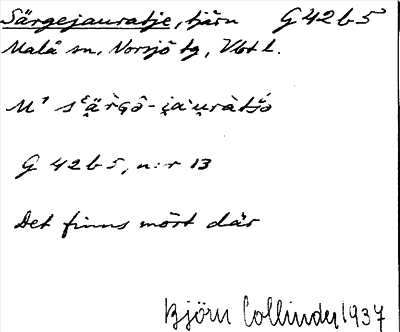 Särgejauratje, tjärn G 42 b 5
Malå sn, Norsjö tg, Vbt l.
G 42 b 5, n:r 13
Det finns mört där
Björn Collinder 1937